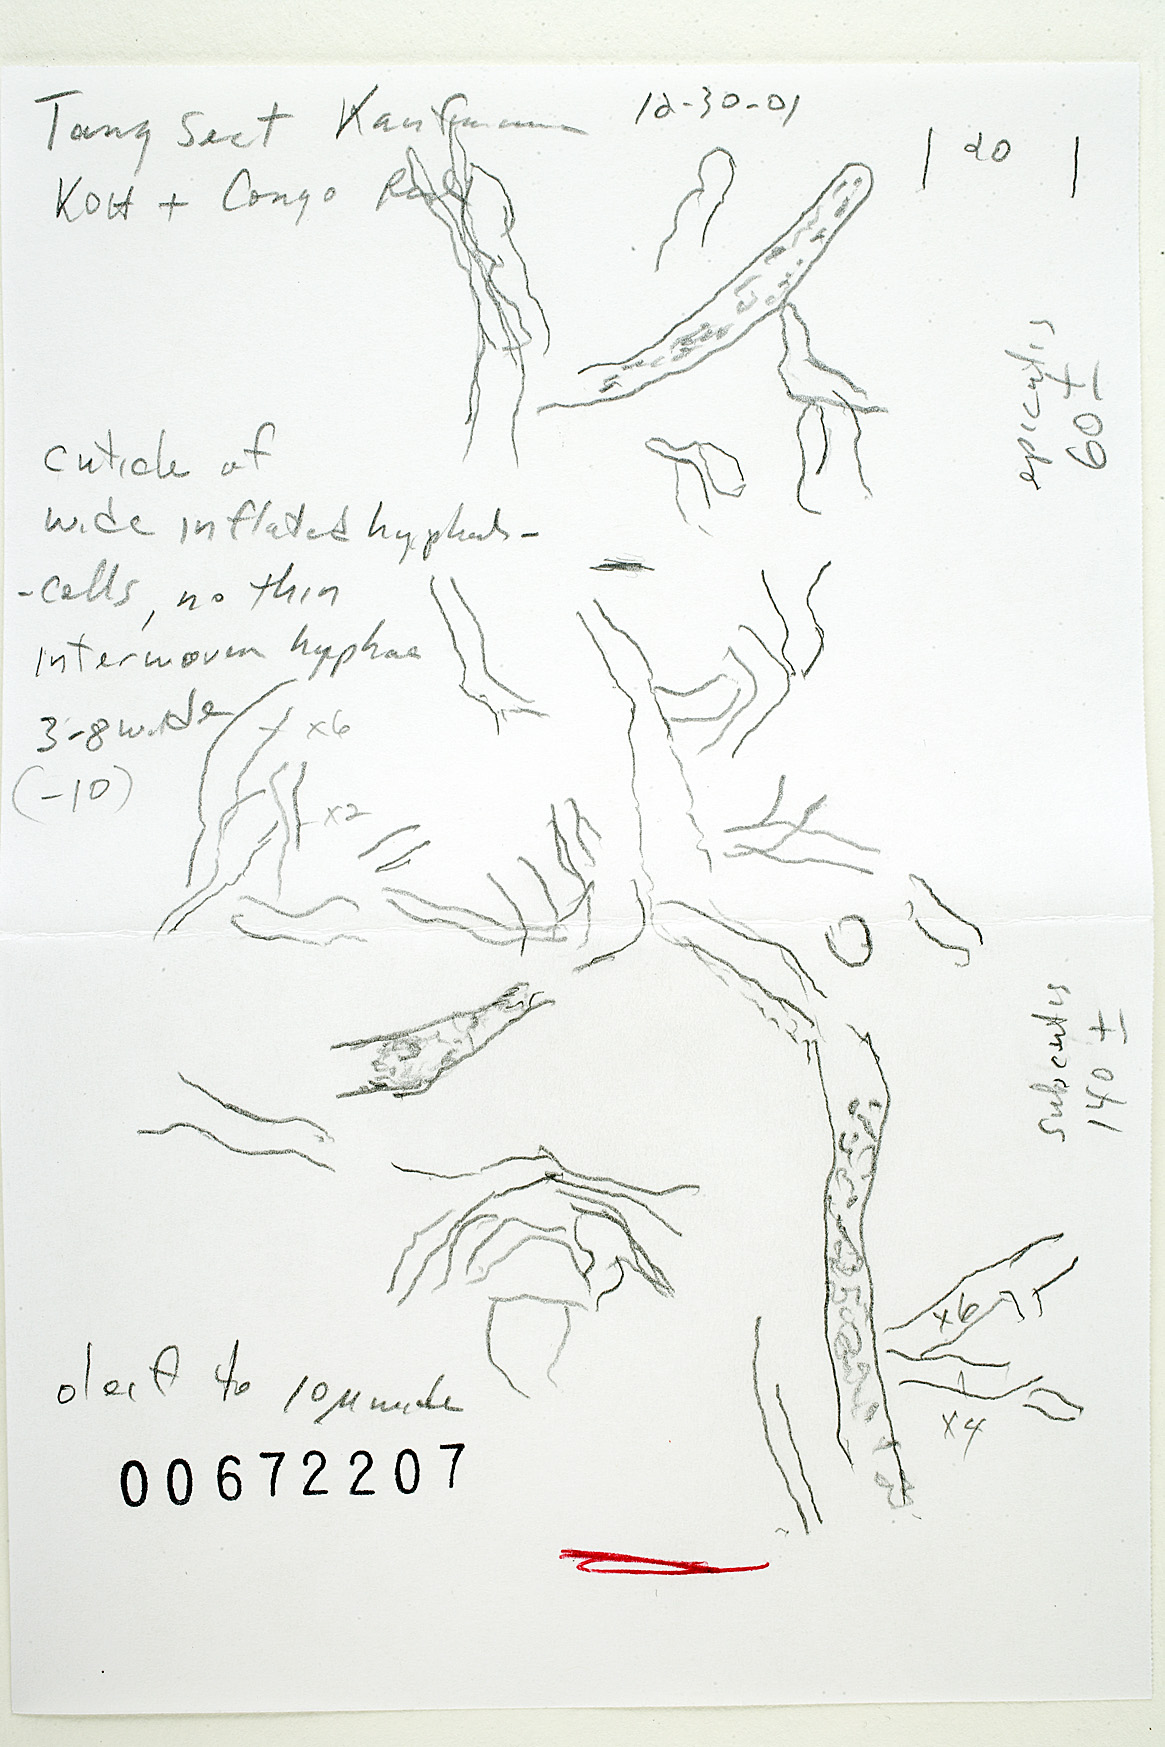 Tang Sect Kauffman 12-30-01
KOH + Congo Red
| 20 |
epicutis
60 ±
cuticle of
wide inflated hyphal-
-cells, no thin
interwoven hyphae
3-8 wide
(-10)
x6
x2
subcutis
140 ±
x6
x4
oleif to 10 µ wide
00672207